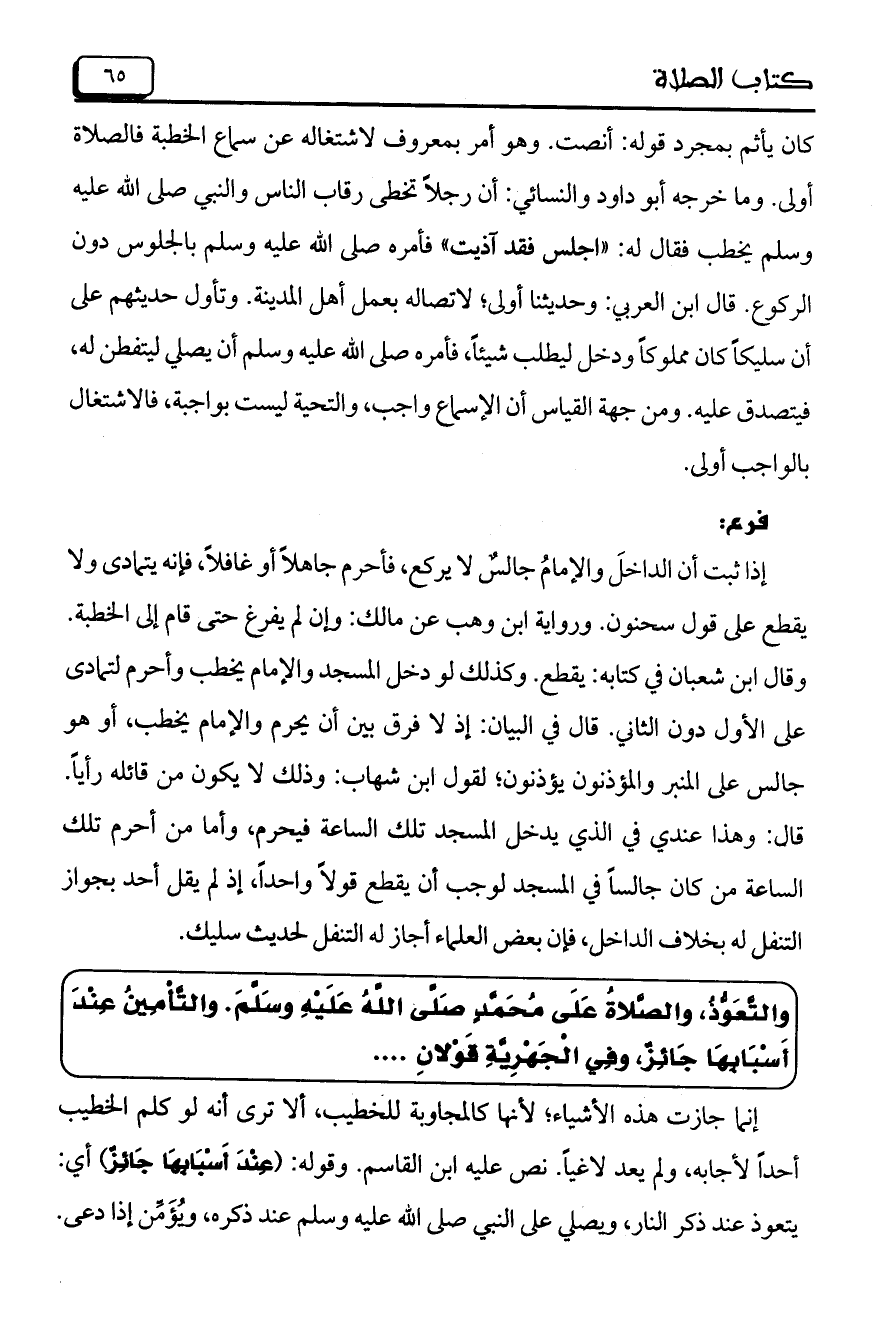 كتاب الصلاة
٦٥
كان يأثم بمجرد قوله: أنصت. وهو أمر بمعروف لاشتغاله عن سماع الخطبة فالصلاة
أولى. وما خرجه أبو داود والنسائي: أن رجلاً تخطى رقاب الناس والنبي صلى الله عليه
وسلم يخطب فقال له: «اجلس فقد آذيت» فأمره صلى الله عليه وسلم بالجلوس دون
الركوع. قال ابن العربي: وحديثنا أولى؛ لاتصاله بعمل أهل المدينة. وتأول حديثهم على
أن سليكاً كان مملوكاً ودخل ليطلب شيئاً، فأمره صلى الله عليه وسلم أن يصلي ليتفطن له،
فيتصدق عليه. ومن جهة القياس أن الإسماع واجب، والتحية ليست بواجبة، فالاشتغال
بالواجب أولى.
فرع:
إذا ثبت أن الداخلَ والإمامُ جالسٌ لا يركع، فأحرم جاهلاً أو غافلاً، فإنه يتمادى ولا
يقطع على قول سحنون. ورواية ابن وهب عن مالك: وإن لم يفرغ حتى قام إلى الخطبة.
وقال ابن شعبان في كتابه: يقطع. وكذلك لو دخل المسجد والإمام يخطب وأحرم لتمادى
على الأول دون الثاني. قال في البيان: إذ لا فرق بين أن يحرم والإمام يخطب، أو هو
جالس على المنبر والمؤذنون يؤذنون؛ لقول ابن شهاب: وذلك لا يكون من قائله رأياً.
قال: وهذا عندي في الذي يدخل المسجد تلك الساعة فيحرم، وأما من أحرم تلك
الساعة من كان جالساً في المسجد لوجب أن يقطع قولاً واحداً، إذ لم يقل أحد بجواز
التنفل له بخلاف الداخل، فإن بعض العلماء أجاز له التنفل لحديث سليك.
والتَّعَوُّذُ، والصَّلاةُ عَلَى مُحَمَّدٍ صَلَّى اللَّهُ عَلَيْهِ وسَلَّمَ. والتَّأْمِينُ عِنْدَ
أَسْبَابِهَا جَائِزٌ، وفِي الْجَهْرِيَّةِ قَوْلانِ ....
إنما جازت هذه الأشياء؛ لأنها كالمجاوبة للخطيب، ألا ترى أنه لو كلم الخطيب
أحداً لأجابه، ولم يعد لاغياً. نص عليه ابن القاسم. وقوله: (عِنْدَ أَسْبَابِهَا جَائِزٌ) أي:
يتعوذ عند ذكر النار، ويصلي على النبي صلى الله عليه وسلم عند ذكره، ويُؤَمِّن إذا دعى.